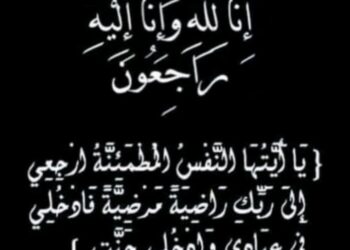 إِنَّا لِلَّهِ وَإِنَّا إِلَيْهِ
رَاجِعُونَ
{ يَا أَيَّتُهَا النَّفْسُ الْمُطْمَئِنَّةُ ارْجِعِي
إِلَى رَبِّكِ رَاضِيَةً مَرْضِيَّةً فَادْخُلِي
فِي عِبَادِي وَادْخُلِي جَنَّتِي }